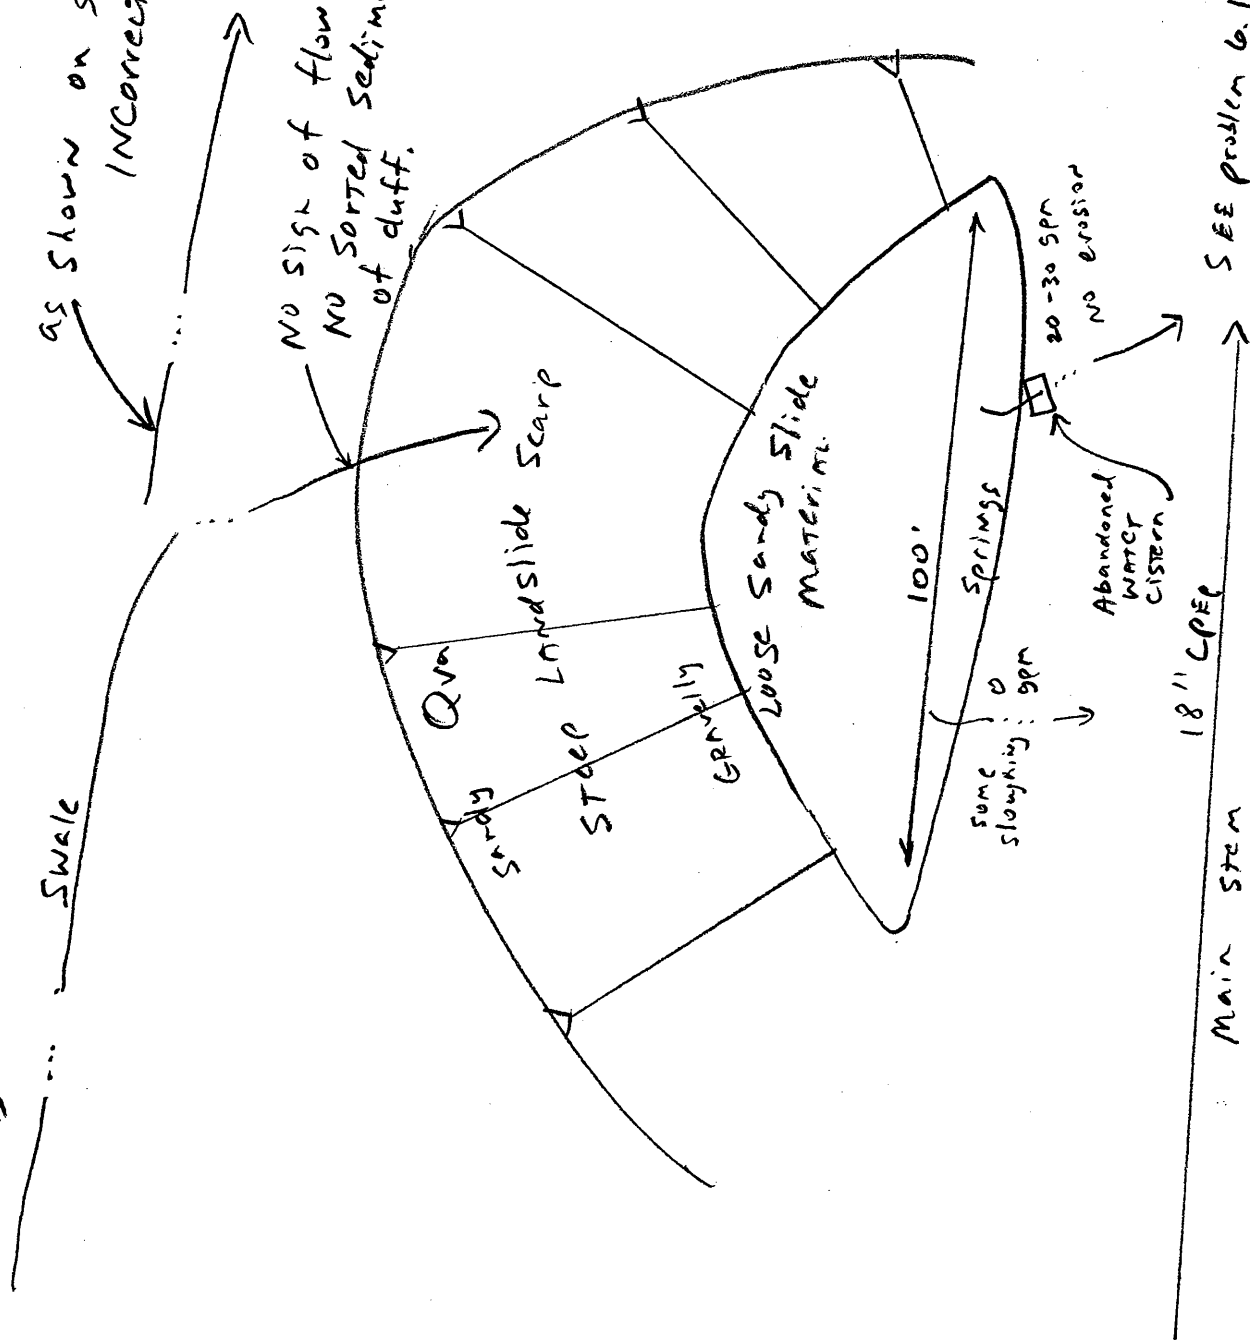 as shown on
INcorrect
Swale
No sign of flow
No sorted
of duff.
Qva
Sandy
STeep LANDslide Scarp
GRAvelly
Loose Sandy Slide
MATeriAL
100'
Springs
some
sloughing
0
gpm
20-30 gpm
No erosion
Abandoned
WATer
CISTern
18" CPEP
Main Stem
SEE problem 6.1